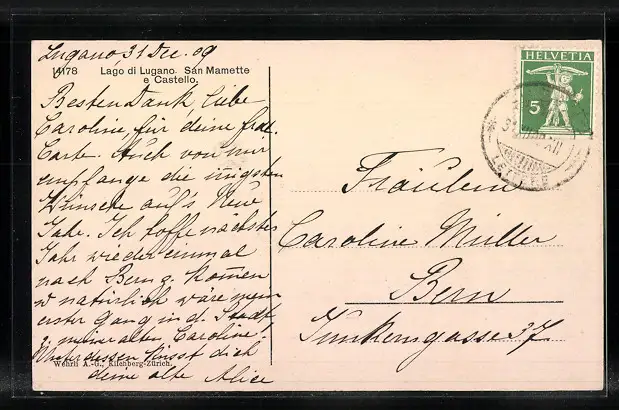 Lugano, 31 Dec. 09
14178 Lago di Lugano. San Mamette
e Castello.
Besten Dank, liebe
Caroline, für deine frdl.
Carte. Auch von mir
empfange die innigsten
Wünsche auf's Neue
Jahr. Ich hoffe nächstes
Jahr wieder einmal
nach Bern z. kom̅en
u natürlich wäre mein
erster Gang in d. Stadt
z. meiner alten Caroline!
Unterdessen küsst dich
deine alte Alice
Wehrli A.-G., Kilchberg-Zürich.
HELVETIA
5
Fräulein
Caroline Müller
Bern
Junkerngasse 37.